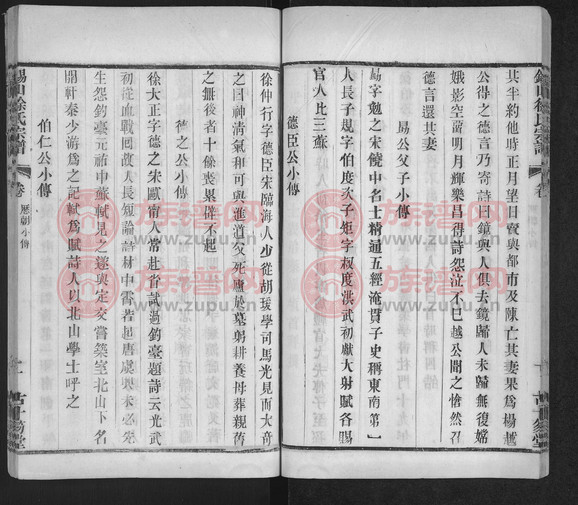 其半約他時正月望日賣與都市及陳亡其妻果爲楊越
公得之德言乃寄詩曰鏡與人俱去鏡歸人未歸無復嫦
娥影空留明月輝樂昌得詩怨泣不已越公聞之愴然召
德言還其妻
勗公父子小傳
勗字勉之宋饒中名士精通五經淹貫子史稱東南第一
人長子規字伯度次子矩字叔度洪武初獻大射賦各賜
官人比三蘇
德臣公小傳
徐仲行字德臣宋臨海人少從胡瑗學司馬光見而大奇
之曰神清氣和可與進道父死廬於墓躬耕養母葬親舊
之無後者十餘喪累辟不起
德之公小傳
徐大正字德之宋甌甯人常赴省試過釣臺題詩云光武
初從血戰回故人長短論
生怨釣臺元祐中蘇軾見之遂與定交嘗築室北山下名
閒軒秦少游爲之記軾爲賦詩人以北山學士呼之
伯仁公小傳
錫山徐氏宗譜
卷
歷朝小傳
十一
錫山徐氏宗譜
卷
十
族谱网
www.zupu.cn
族谱网
www.zupu.cn
族谱网
www.zupu.cn
族谱网
www.zupu.cn